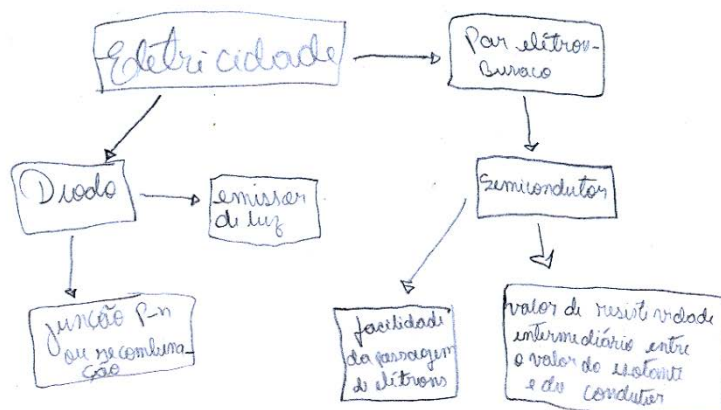 Eletricidade
Par elétron-
Buraco
Diodo
emissor
de luz
Semicondutor
junção P-n
ou recombina-
ção
facilidade
da passagem
de elétrons
valor de resistividade
intermediário entre
o valor do isolante
e do condutor